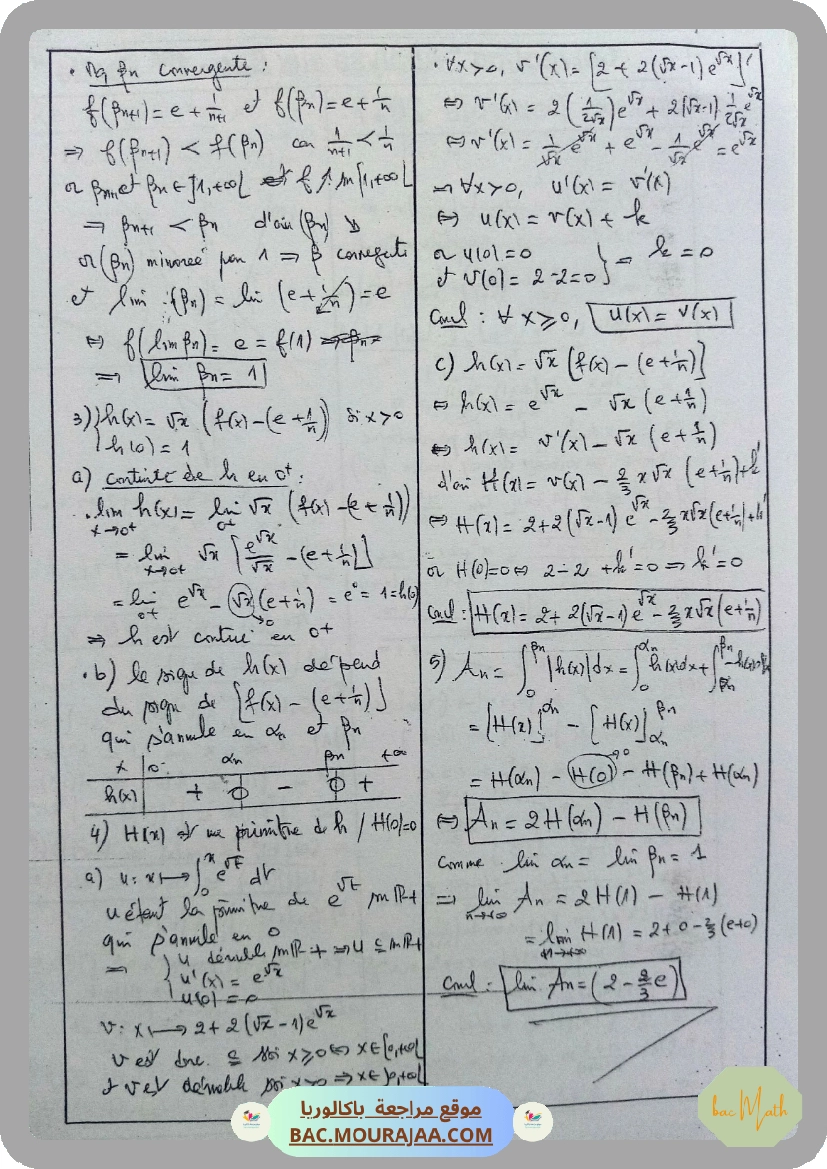 . Mq βn convergente :
f(βn+1) = e + 1/n+1 et f(βn) = e + 1/n
⇒ f(βn+1) < f(βn) car 1/n+1 < 1/n
or βn+1 et βn ∈ ]1,+∞[ et f ↑ sur [1,+∞[
⇒ βn+1 < βn d'où (βn) ↘
or (βn) minorée par 1 ⇒ β convergente
et lim f(βn) = lim (e + 1/n) = e
⇔ f(lim βn) = e = f(1)
⇒ lim βn = 1
3) { h(x) = √x (f(x) - (e + 1/n)) si x > 0
h(0) = 1
a) continuité de h en 0+ :
. lim x→0+ h(x) = lim 0+ √x (f(x) - (e + 1/n))
= lim x→0+ √x [e^√x/√x - (e + 1/n)]
= lim 0+ e^√x - √x (e + 1/n) = e° = 1 = h(0)
→0
⇒ h est continue en 0+
. b) le signe de h(x) dépend
du signe de [f(x) - (e + 1/n)]
qui s'annule en αn et βn
x 0 αn βn +∞
h(x) + 0 - 0 +
4) H(x) est une primitive de h / H(0)=0
a) u : x ↦ ∫0^x e^√t dt
u étant la primitive de e^√t sur IR+
qui s'annule en 0
⇒ { u dérivable sur IR+ ⇒ u C sur IR+
u'(x) = e^√x
u(0) = 0
v : x ↦ 2 + 2(√x - 1)e^√x
v est donc C ssi x ≥ 0 ⇔ x ∈ [0,+∞[
et v est dérivable ssi x > 0 ⇒ x ∈ ]0,+∞[
. ∀x > 0, v'(x) = [2 + 2(√x - 1)e^√x]'
⇔ v'(x) = 2(1/2√x)e^√x + 2(√x - 1) 1/2√x e^√x
⇔ v'(x) = 1/√x e^√x + e^√x - 1/√x e^√x = e^√x
⇒ ∀x > 0, u'(x) = v'(x)
⇔ u(x) = v(x) + k
or u(0) = 0
et v(0) = 2 - 2 = 0 } ⇒ k = 0
Concl : ∀ x ≥ 0, u(x) = v(x)
c) h(x) = √x [f(x) - (e + 1/n)]
⇔ h(x) = e^√x - √x (e + 1/n)
⇔ h(x) = v'(x) - √x (e + 1/n)
d'où H(x) = v(x) - 2/3 x√x (e + 1/n) + k'
⇔ H(x) = 2 + 2(√x - 1) e^√x - 2/3 x√x (e + 1/n) + k'
or H(0) = 0 ⇔ 2 - 2 + k' = 0 ⇒ k' = 0
Concl : H(x) = 2 + 2(√x - 1) e^√x - 2/3 x√x (e + 1/n)
5) An = ∫0^βn |h(x)| dx = ∫0^αn h(x)dx + ∫αn^βn -h(x)dx
= [H(x)]0^αn - [H(x)]αn^βn
= H(αn) - H(0) - H(βn) + H(αn)
→0
⇔ An = 2H(αn) - H(βn)
Comme lim αn = lim βn = 1
⇒ lim n→+∞ An = 2H(1) - H(1)
= lim n→+∞ H(1) = 2 + 0 - 2/3 (e+0)
Concl : lim An = (2 - 2/3 e)
موقع مراجعة باكالوريا
BAC.MOURAJAA.COM
bac Math